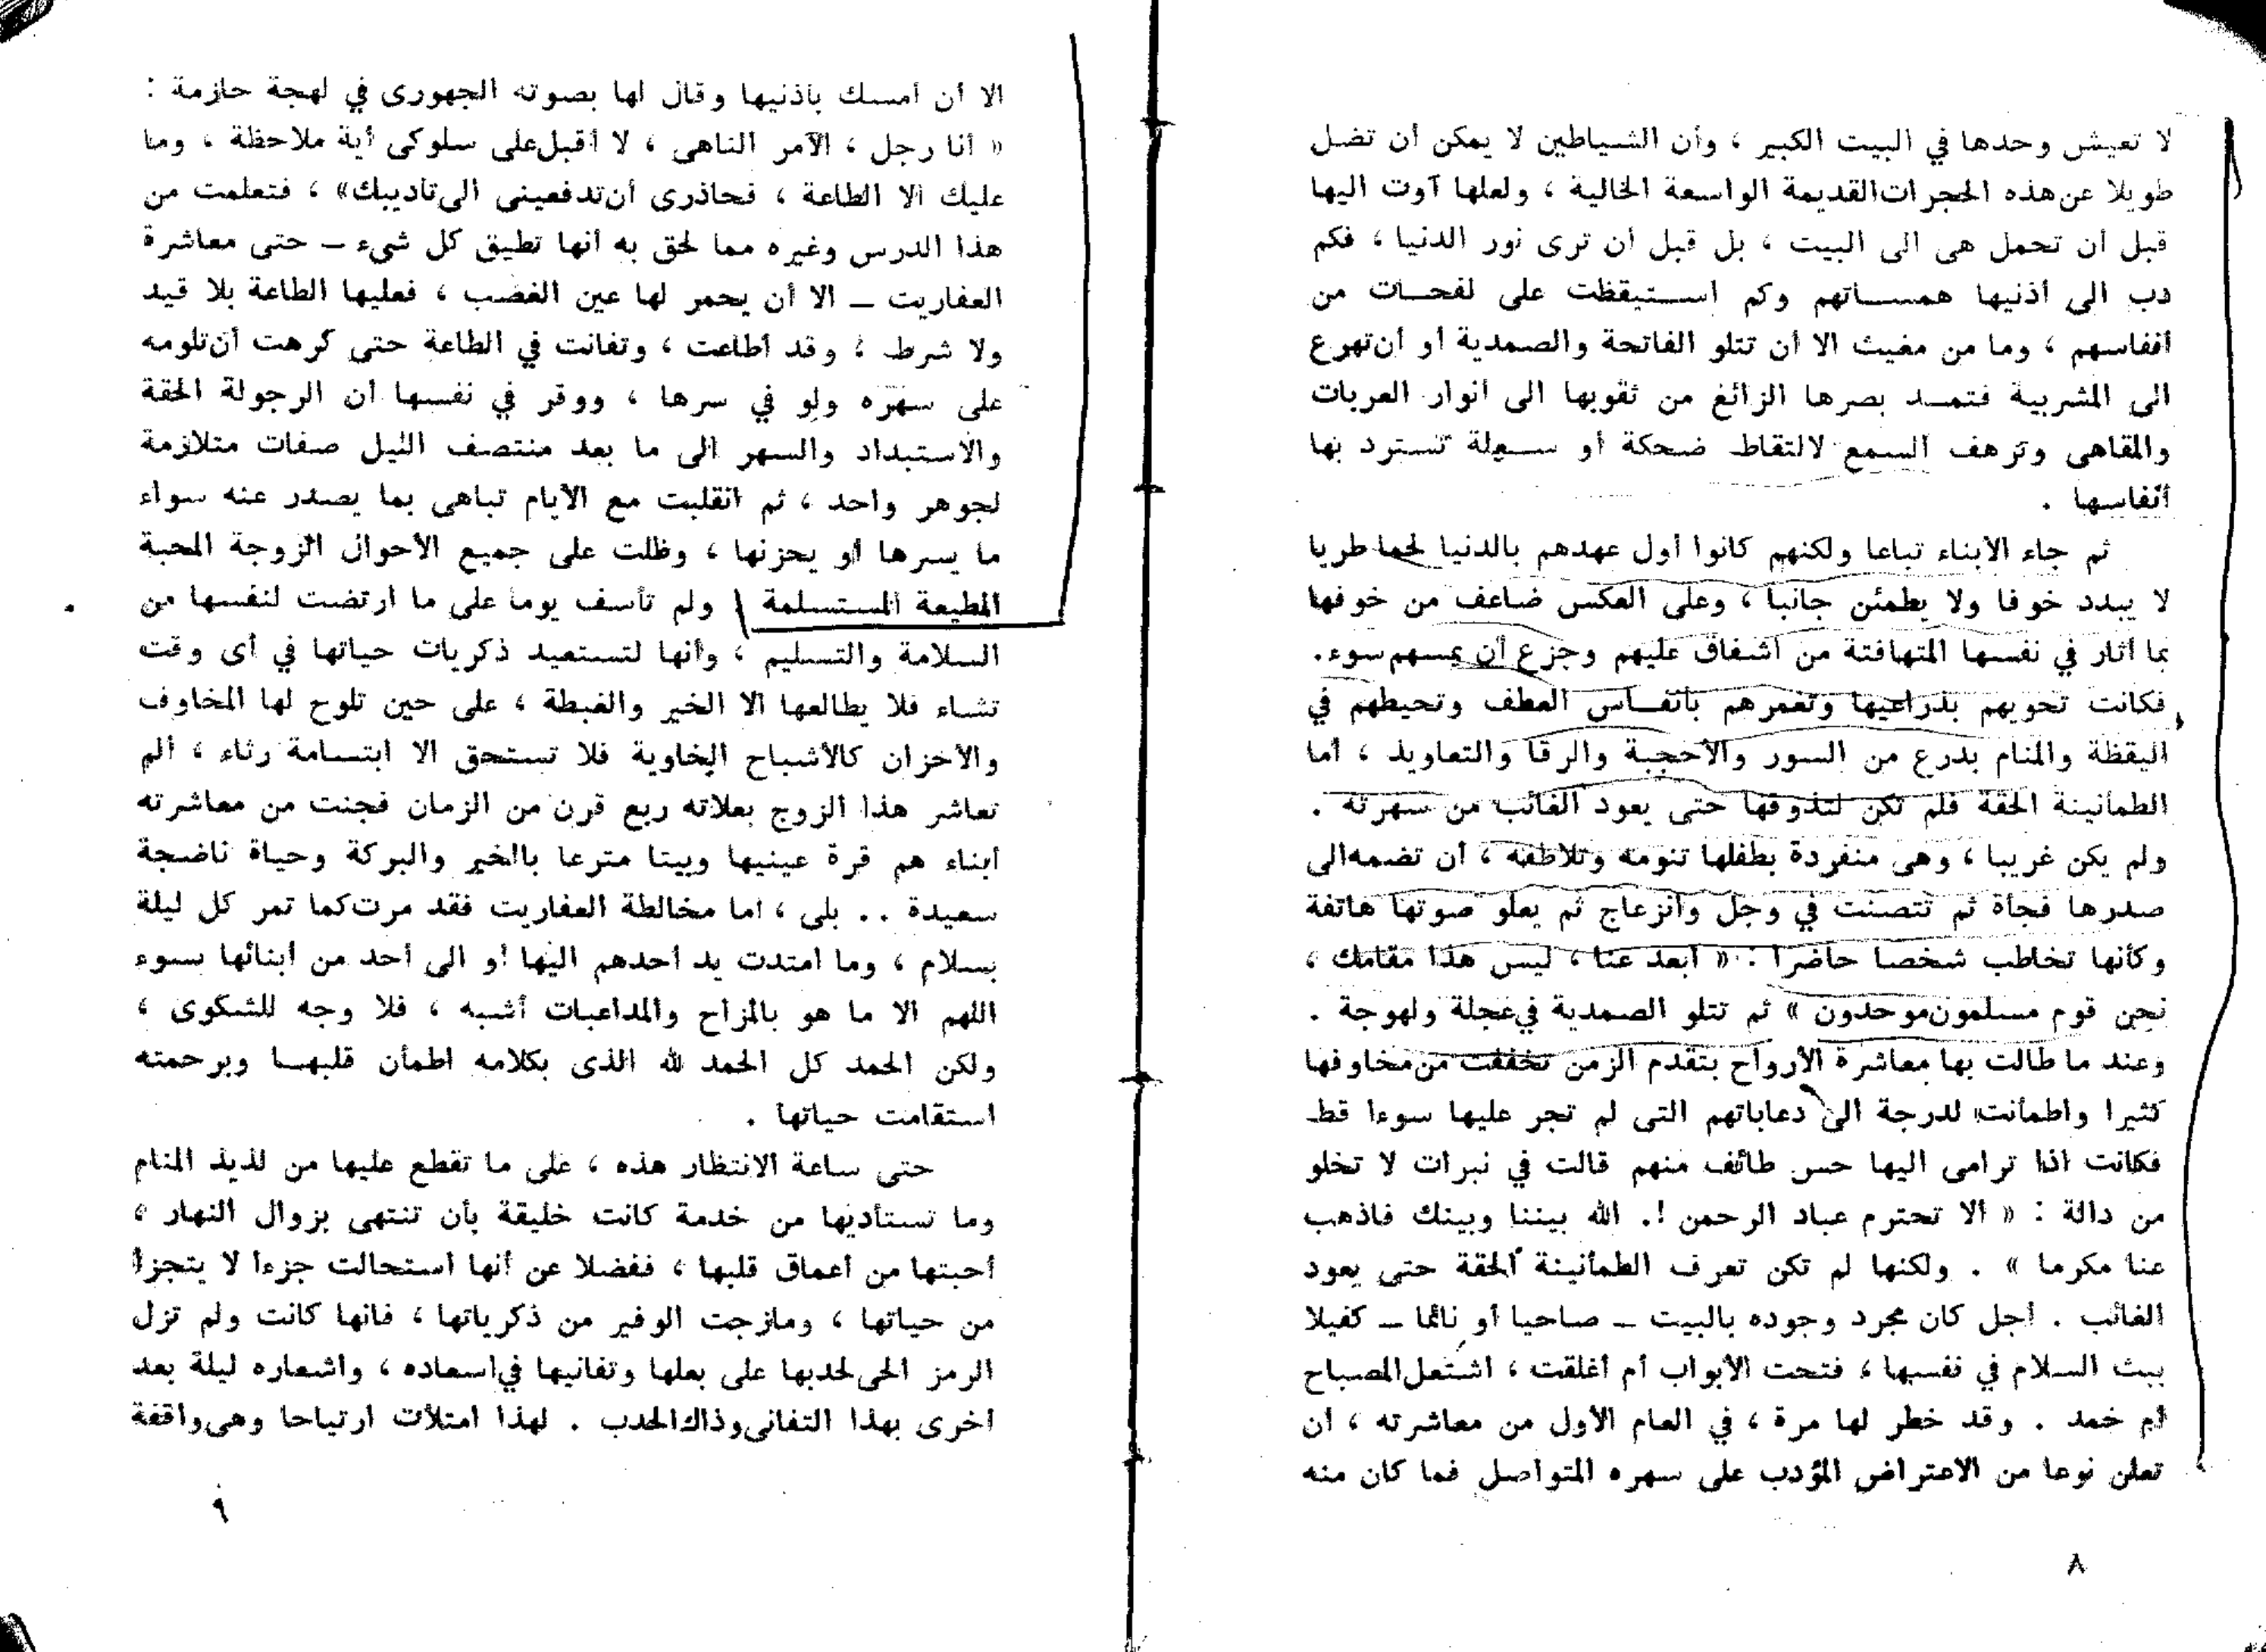 لا تعيش وحدها في البيت الكبير ، وأن الشياطين لا يمكن أن تضل
طويلا عن هذه الحجرات القديمة الواسعة الخالية ، ولعلها آوت اليها
قبل أن تحمل هى الى البيت ، بل قبل أن ترى نور الدنيا ، فكم
دب الى أذنيها همساتهم وكم استيقظت على لفحات من
أنفاسهم ، وما من مغيث الا أن تتلو الفاتحة والصمدية أو أن تهرع
الى المشربية فتمد بصرها الزائغ من ثقوبها الى أنوار العربات
والمقاهى وترهف السمع لالتقاط ضحكة أو سعلة تسترد بها
أنفاسها .
ثم جاء الأبناء تباعا ولكنهم كانوا أول عهدهم بالدنيا لحما طريا
لا يبدد خوفا ولا يطمئن جانبا ، وعلى العكس ضاعف من خوفها
بما أثار في نفسها المتهافتة من اشفاق عليهم وجزع أن يمسهم سوء .
فكانت تحويهم بذراعيها وتغمرهم بأنفاس العطف وتحيطهم في
اليقظة والمنام بدرع من السور والأحجبة والرقا والتعاويذ ، أما
الطمأنينة الحقة فلم تكن لتذوقها حتى يعود الغائب من سهرته .
ولم يكن غريبا ، وهى منفردة بطفلها تنومه وتلاطفه ، أن تضمه الى
صدرها فجأة ثم تتصنت في وجل وانزعاج ثم يعلو صوتها هاتفة
وكأنها تخاطب شخصا حاضرا : « ابعد عنا ، ليس هذا مقامك ،
نحن قوم مسلمون موحدون » ثم تتلو الصمدية في عجلة ولهوجة .
وعند ما طالت بها معاشرة الأرواح بتقدم الزمن تخففت من مخاوفها
كثيرا واطمأنت لدرجة الى دعاباتهم التى لم تجر عليها سوءا قط
فكانت اذا ترامى اليها حس طائف منهم قالت في نبرات لا تخلو
من دالة : « ألا تحترم عباد الرحمن !. الله بيننا وبينك فاذهب
عنا مكرما » . ولكنها لم تكن تعرف الطمأنينة الحقة حتى يعود
الغائب . أجل كان مجرد وجوده بالبيت – صاحيا أو نائما – كفيلا
ببث السلام في نفسها ، فتحت الأبواب أم أغلقت ، اشتعل المصباح
أم خمد . وقد خطر لها مرة ، في العام الأول من معاشرته ، أن
تعلن نوعا من الاعتراض المؤدب على سهره المتواصل فما كان منه
٨
الا أن أمسك بأذنيها وقال لها بصوته الجهورى في لهجة حازمة :
« أنا رجل ، الآمر الناهى ، لا أقبل على سلوكى أية ملاحظة ، وما
عليك الا الطاعة ، فحاذرى أن تدفعينى الى تأديبك» ، فتعلمت من
هذا الدرس وغيره مما لحق به أنها تطيق كل شىء – حتى معاشرة
العفاريت – الا أن يحمر لها عين الغضب ، فعليها الطاعة بلا قيد
ولا شرط ، وقد أطاعت ، وتفانت في الطاعة حتى كرهت أن تلومه
على سهره ولو في سرها ، ووقر في نفسها أن الرجولة الحقة
والاستبداد والسهر الى ما بعد منتصف الليل صفات متلازمة
لجوهر واحد ، ثم انقلبت مع الأيام تباهى بما يصدر عنه سواء
ما يسرها أو يحزنها ، وظلت على جميع الأحوال الزوجة المحبة
المطيعة المستسلمة ولم تأسف يوما على ما ارتضت لنفسها من
السلامة والتسليم ، وأنها لتستعيد ذكريات حياتها في أى وقت
تشاء فلا يطالعها الا الخير والغبطة ، على حين تلوح لها المخاوف
والأحزان كالأشباح الخاوية فلا تستحق الا ابتسامة رثاء ، ألم
تعاشر هذا الزوج بعلاته ربع قرن من الزمان فجنت من معاشرته
أبناء هم قرة عينيها وبيتا مترعا بالخير والبركة وحياة ناضجة
سعيدة .. بلى ، أما مخالطة العفاريت فقد مرت كما تمر كل ليلة
بسلام ، وما امتدت يد أحدهم اليها أو الى أحد من أبنائها بسوء
اللهم الا ما هو بالمزاح والمداعبات أشبه ، فلا وجه للشكوى ،
ولكن الحمد كل الحمد لله الذى بكلامه اطمأن قلبهـا وبرحمته
استقامت حياتها .
حتى ساعة الانتظار هذه ، على ما تقطع عليها من لذيذ المنام
وما تستأديها من خدمة كانت خليقة بأن تنتهى بزوال النهار ،
أحبتها من أعماق قلبها ، ففضلا عن أنها استحالت جزءا لا يتجزأ
من حياتها ، ومازجت الوفير من ذكرياتها ، فانها كانت ولم تزل
الرمز الحى لحدبها على بعلها وتفانيها في اسعاده ، واشعاره ليلة بعد
أخرى بهذا التفانى وذاك الحدب . لهذا امتلأت ارتياحا وهى واقفة
٩